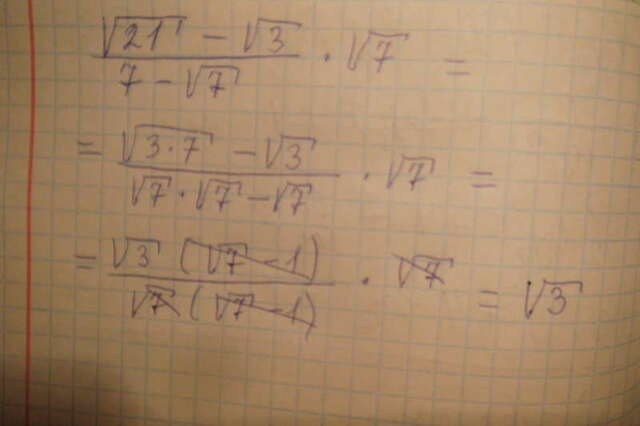 (√21 - √3)/(7 - √7) · √7 =
= (√3·7 - √3)/(√7 · √7 - √7) · √7 =
= (√3 (√7 - 1))/(√7 (√7 - 1)) · √7 = √3